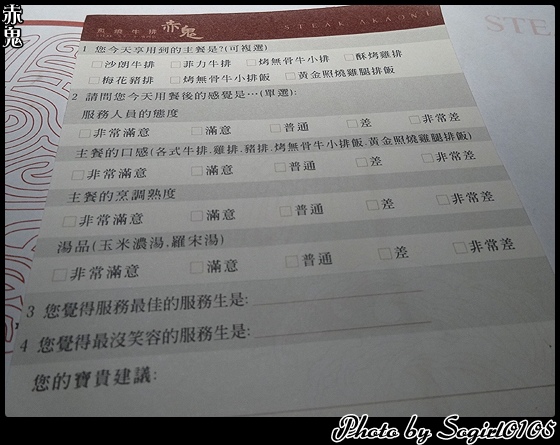 赤鬼
炙燒牛排 赤鬼 STEAK AKAJKI
STE
1 您今天享用到的主餐是?(可複選)
□沙朗牛排 □菲力牛排 □烤無骨牛小排 □酥烤雞排
□梅花豬排 □烤無骨牛小排飯 □黃金照燒雞腿排飯
2 請問您今天用餐後的感覺是…(單選):
服務人員的態度
□非常滿意 □滿意 □普通 □差 □非常差
主餐的口感(各式牛排.雞排.豬排.烤無骨牛小排飯.黃金照燒雞腿排飯)
□非常滿意 □滿意 □普通 □差 □非常差
主餐的烹調熟度
□非常滿意 □滿意 □普通 □差 □非常差
湯品(玉米濃湯.羅宋湯)
□非常滿意 □滿意 □普通 □差 □非常差
3 您覺得服務最佳的服務生是:
4 您覺得最沒笑容的服務生是:
您的寶貴建議:
Photo by Sogirl0105